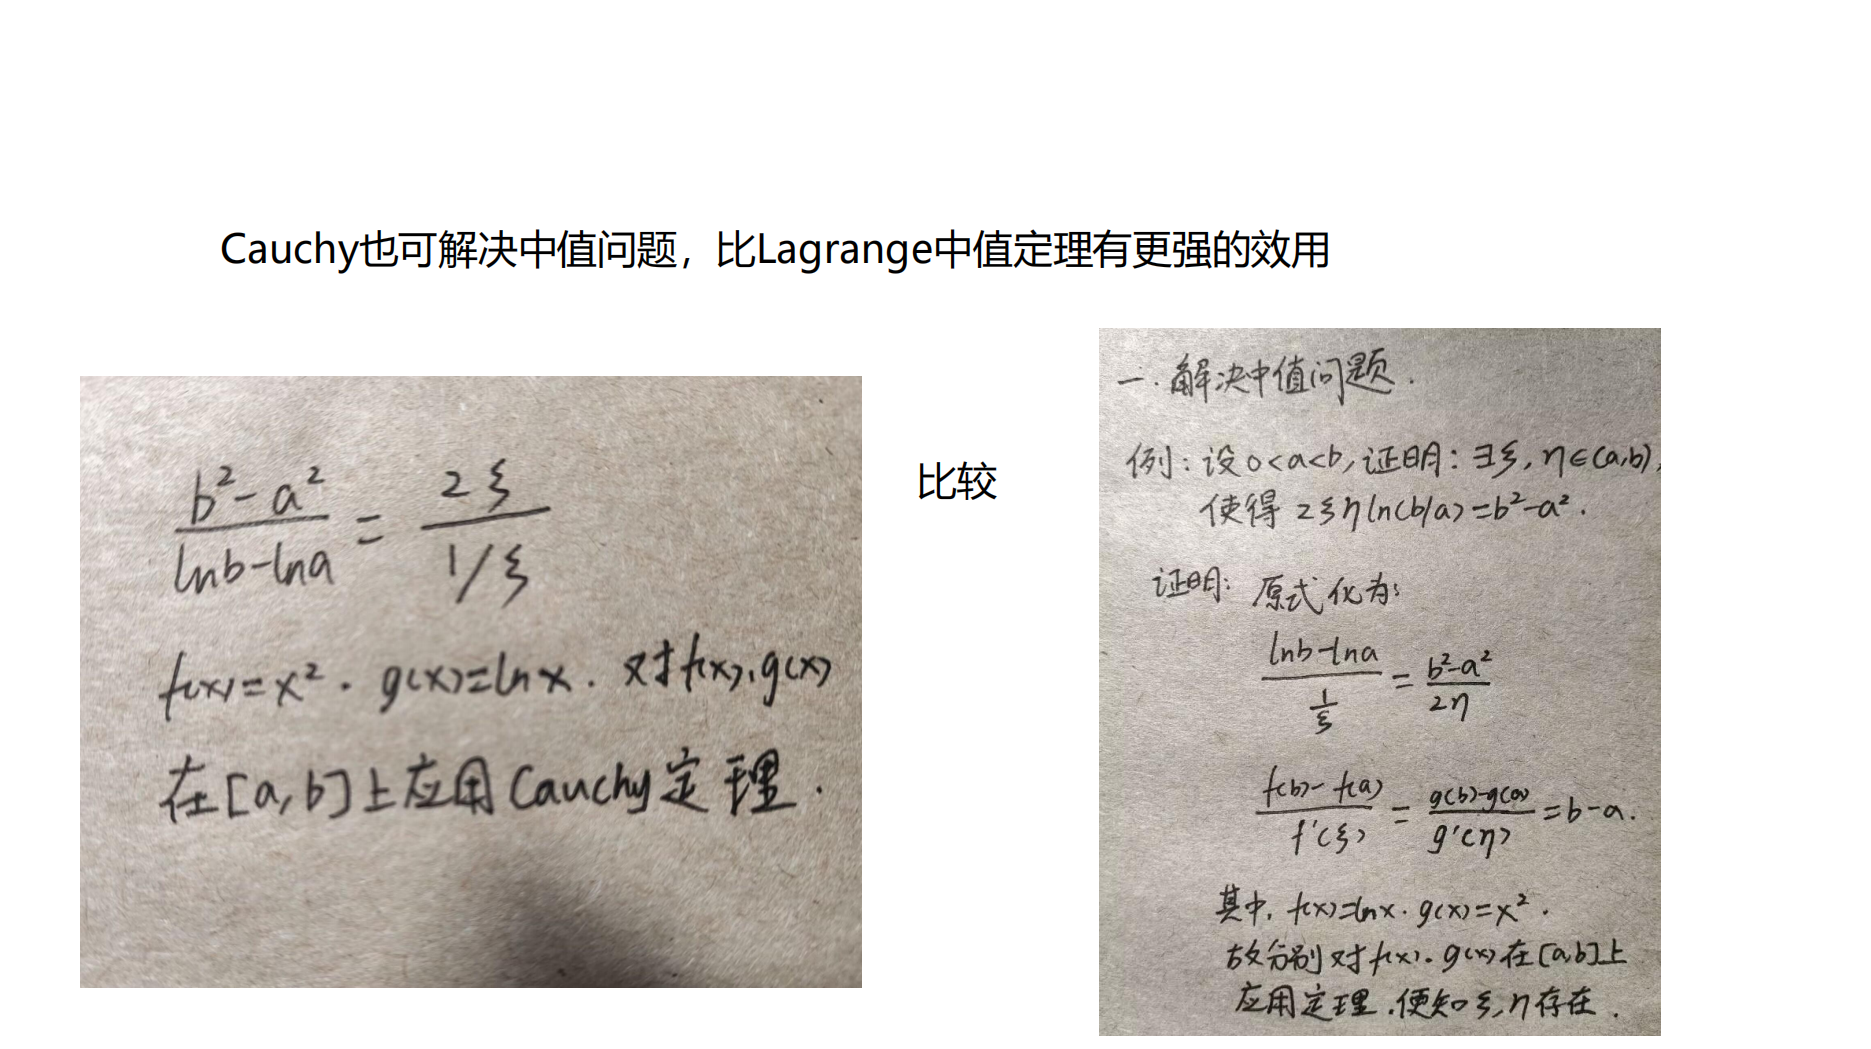 Cauchy也可解决中值问题，比Lagrange中值定理有更强的效用
b²-a² / lnb-lna = 2ξ / 1/ξ
f(x)=x². g(x)=lnx. 对f(x),g(x)
在[a,b]上应用Cauchy定理.
比较
一.解决中值问题.
例:设0<a<b,证明:∃ξ,η∈(a,b),
使得 2ξηln(b/a)=b²-a².
证明: 原式化为:
lnb-lna / 1/ξ = b²-a² / 2η
f(b)-f(a) / f'(ξ) = g(b)-g(a) / g'(η) =b-a.
其中, f(x)=lnx. g(x)=x².
故分别对f(x).g(x)在[a,b]上
应用定理.便知ξ,η存在.